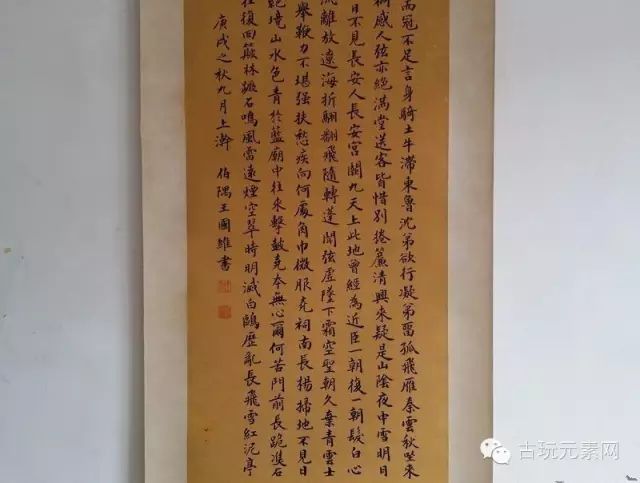 而冠不足言身騎土牛滯東魯沈弟欲行凝弟留孤飛雁秦雲秋坐來
桐感人弦亦絕滿堂送客皆惜別捲簾清興來疑是山陰夜中雪明日
日不見長安人長安宮闕九天上此地曾經為近臣一朝復一朝髮白心
流離放遠海折翮翻飛隨轉蓬聞弦虛墜下霜空聖朝久棄青雲士
舉鞭力不堪强扶愁疾向何處角巾微服堯祠南長楊掃地不見日
絕境山水色青於藍廟中往來擊鼓堯本無心爾何苦門前長跪雙石
往復回簸林蹶石鳴風雷遠煙空翠時明滅白鷗歷亂長飛雪紅泥亭
庚戌之秋九月上澣 伯隅王國維書
古玩元素网